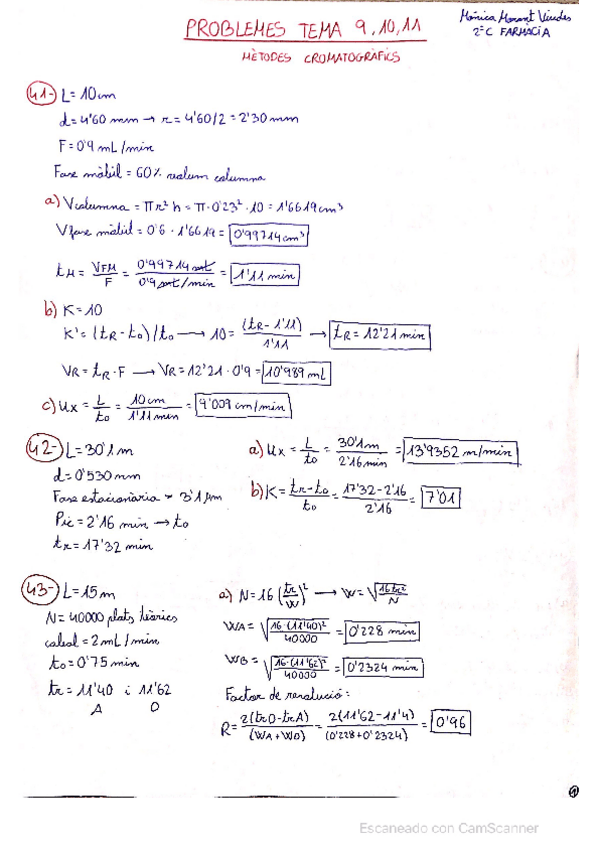 PROBLEMES TEMA 9,10,11
Mònica Morant Viudes
2ºC FARMACIA
MÈTODES CROMATOGRÀFICS
41- L = 10 cm
d = 4'60 mm → r = 4'60/2 = 2'30 mm
F = 0'9 mL/min
Fase mòbil = 60% volum columna
a) Vcolumna = π r² h = π · 0'23² · 10 = 1'6619 cm³
Vfase mòbil = 0'6 · 1'6619 = 0'99714 cm³
tM = VFM/F = 0'99714 mL / 0'9 mL/min = 1'11 min
b) K = 10
K' = (tR - t0)/t0 → 10 = (tR - 1'11)/1'11 → tR = 12'21 min
VR = tR · F → VR = 12'21 · 0'9 = 10'989 mL
c) Ux = L/t0 = 10 cm/1'11 min = 9'009 cm/min
42- L = 30'1 m
d = 0'530 mm
Fase estacionària = 3'1 µm
Pic = 2'16 min → t0
tr = 17'32 min
a) Ux = L/t0 = 30'1 m/2'16 min = 13'9352 m/min
b) K = tr - t0/t0 = 17'32 - 2'16/2'16 = 7'01
43- L = 15 m
N = 40000 plats teòrics
cabal = 2 mL/min
t0 = 0'75 min
tr = 11'40 i 11'62
A B
a) N = 16 (tr/W)² → W = √16 tr²/N
WA = √16·(11'40)²/40000 = 0'228 min
WB = √16·(11'62)²/40000 = 0'2324 min
Factor de resolució:
R = 2(trB - trA)/(WA + WB) = 2(11'62 - 11'4)/(0'228 + 0'2324) = 0'96
1
Escaneado con CamScanner